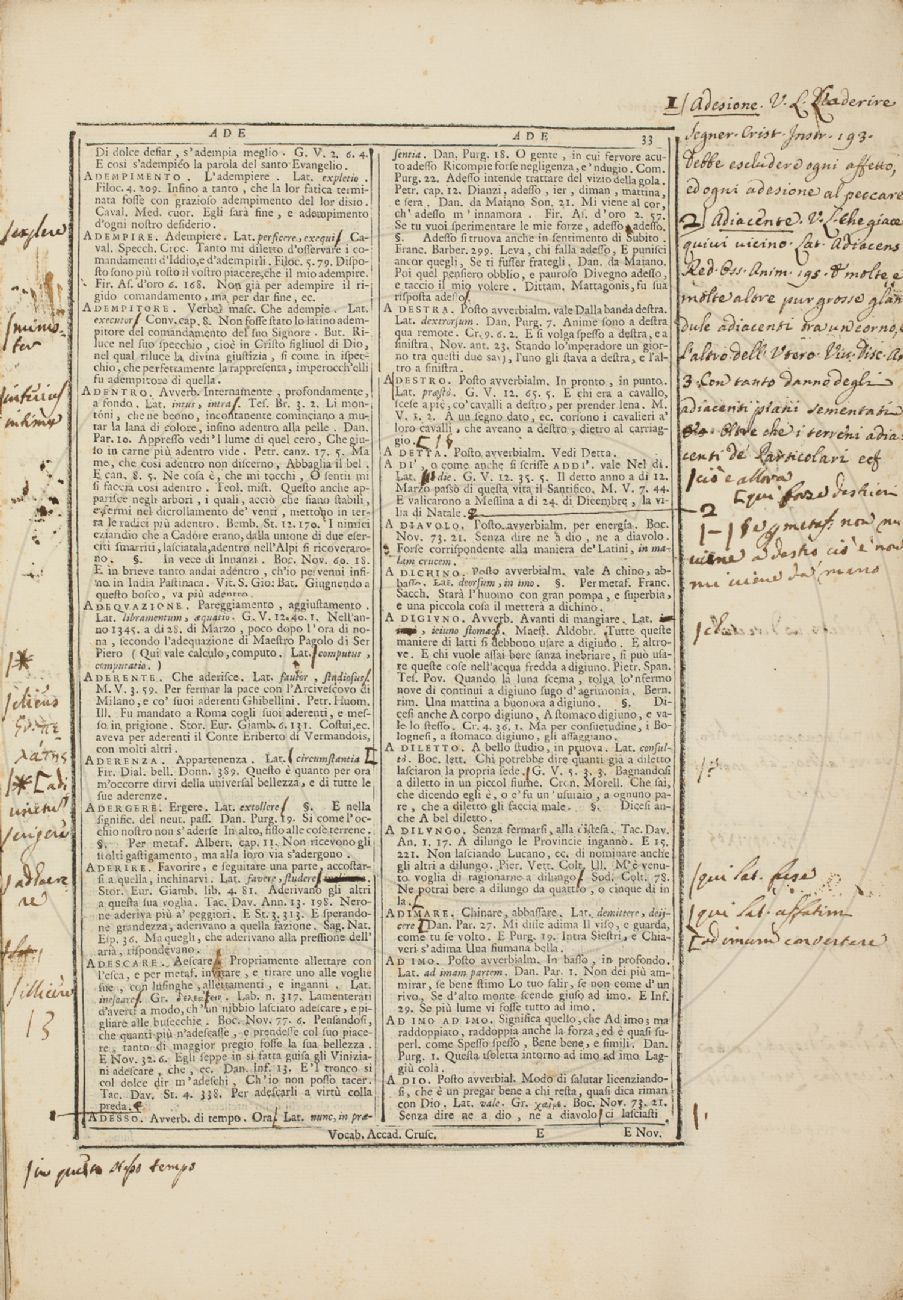 1/ Adesione. V. L. L'aderire
Segner. Crist. Instr. 193.
Debbe escludere ogni affetto,
ed ogni adesione al peccare
2/ Adiacente. V. L. che giace
quivi vicino. Lat. Adiacens
Red. Oss. Anim. 195. E molte e
molte alore pur grosse glan
dule adiacenti tra un corno, e
l'altro dell' Utero. Viv. Disc. Ar
3. Con tanto danno degli
adiacenti piani sementati
Oltre che i terreni adia
centi de Particolari ec
ciò è allora
2
non
viene a destro cio è non
mi viene da mano
qui Lat. fise
qui Lat. affatim
ad imum convertere
explere
intimius
adhaere
re
allicere
13
in questo stesso tempo
ADE
ADE 33
Di dolce desiar, s'adempia meglio. G. V. 2. 6. 4.
E così s'adempièo la parola del santo Evangelio.
ADEMPIMENTO. L'adempiere. Lat. expletio.
Filoc. 4. 209. Infino a tanto, che la lor fatica termi-
nata fosse con grazioso adempimento del lor disio.
Caval. Med. cuor. Egli sarà fine, e adempimento
d'ogni nostro desiderio.
ADEMPIRE. Adempiere. Lat. perficere, exequi. Ca-
val. Specch. Croc. Tanto mi diletto d'osservare i co-
mandamenti d'Iddio, e d'adempirli. Filoc. 5. 79. Dispo-
sto sono più tosto il vostro piacere, che il mio adempire.
Fir. As. d'oro 6. 168. Non già per adempire il ri-
gido comandamento, ma per dar fine, ec.
ADEMPITORE. Verbal masc. Che adempie. Lat.
executor. Conv. cap. 8. Non fosse stato lo latino adem-
pitore del comandamento del suo Signore. But. Ri-
luce nel suo specchio, cioè in Cristo figliuol di Dio,
nel qual riluce la divina giustizia, sì come in ispec-
chio, che perfettamente la rappresenta, imperocch'elli
fu adempitore di quella.
ADENTRO. Avverb. Internamente, profondamente,
a fondo. Lat. intus, intra. Tes. Br. 3. 2. Li mon-
toni, che ne beono, incontanente cominciano a mu-
tar la lana di colore, insino adentro alla pelle. Dan.
Par. 10. Appresso vedi 'l lume di quel cero, Che giu-
so in carne più adentro vide. Petr. canz. 17. 5. Ma
me, che così adentro non discerno, Abbaglia il bel.
E can. 8. 5. Ne cosa è, che mi tocchi, O senti mi
si faccia così adentro. Teol. mist. Questo anche ap-
parisce negli arbori, i quali, acciò che siano stabili,
e fermi nel dicrollamento de' venti, mettono in ter-
ra le radici più adentro. Bemb. St. 12. 170. I nimici
eziandio che a Cadore erano, dalla unione di due eser-
citi smarriti, lasciatala, adentro nell'Alpi si ricoveraro-
no. §. In vece di Innanzi. Boc. Nov. 60. 18.
E in brieve tanto andai adentro, ch'io pervenni infi-
no in India Pastinaca. Vit. S. Gio: Bat. Giugnendo a
questo bosco, va più adentro.
ADEQVAZIONE. Pareggiamento, aggiustamento.
Lat. libramentum, æquatio. G. V. 12. 40. 1. Nell'an-
no 1345. a dì 28. di Marzo, poco dopo l'ora di no-
na, secondo l'adequazione di Maestro Pagolo di Ser
Piero (Qui vale calculo, computo. Lat. computus,
computatio.)
ADERENTE. Che aderisce. Lat. fautor, studiosus.
M. V. 3. 59. Per fermar la pace con l'Arcivescovo di
Milano, e co' suoi aderenti Ghibellini. Petr. Huom.
Ill. Fu mandato a Roma cogli suoi aderenti, e mes-
so in prigione. Stor. Eur. Giamb. 6. 131. Costui, ec.
aveva per aderenti il Conte Eriberto di Vermandois,
con molti altri.
ADERENZA. Appartenenza. Lat. circumstantia
Fir. Dial. bell. Donn. 389. Questo è quanto per ora
m'occorre dirvi della universal bellezza, e di tutte le
sue aderenze.
ADERGERE. Ergere. Lat. extollere. §. E nella
signific. del neut. pass. Dan. Purg. 19. Sì come l'oc-
chio nostro non s'aderse In alto, fisso alle cose terrene.
§. Per metaf. Albert. cap. 11. Non ricevono gli
stolti gastigamento, ma alla loro via s'adergono.
ADERIRE. Favorire, e seguitare una parte, accostar-
si a quella, inchinarvi. Lat. favere, studere
Stor. Eur. Giamb. lib. 4. 81. Aderivano gli altri
a questa sua voglia. Tac. Dav. Ann. 13. 198. Nero-
ne aderiva più a' peggiori. E St. 3. 313. E sperando-
ne grandezza, aderivano a quella fazione. Sag. Nat.
Esp. 36. Ma quegli, che aderivano alla pressione dell'
aria, rispondevano.
ADESCARE. Aescare. Propriamente allettare con
l'esca, e per metaf. invitare, e tirare uno alle voglie
sue, con lusinghe, allettamenti, e inganni. Lat.
inescare. Gr. δελεάζειν. Lab. n. 317. Lamenterati
d'averti a modo, ch'un nibbio lasciato adescare, e pi-
gliare alle busecchie. Boc. Nov. 77. 6. Pensandosi,
che quanti più n'adescasse, e prendesse col suo piace-
re, tanto di maggior pregio fosse la sua bellezza.
E Nov. 32. 6. Egli seppe in sì fatta guisa gli Vinizia-
ni adescare, che, ec. Dan. Inf. 13. E'l tronco sì
col dolce dir m'adeschi, Ch'io non posso tacer.
Tac. Dav. St. 4. 338. Per adescarli a virtù colla
preda.
ADESSO. Avverb. di tempo. Ora. Lat. nunc, in præ-
sentia. Dan. Purg. 18. O gente, in cui fervore acu-
to adesso Ricompie forse negligenza, e 'ndugio. Com.
Purg. 22. Adesso intende trattare del vizio della gola.
Petr. cap. 12. Dianzi, adesso, ier, diman, mattina,
e sera. Dan. da Maiano Son. 21. Mi viene al cor,
ch' adesso m' innamora. Fir. As. d'oro 2. 57.
Se tu vuoi sperimentare le mie forze, adesso adesso.
§. Adesso si truova anche in sentimento di Subito.
Franc. Barber. 299. Leva, chi falla adesso, E punisci
ancor quegli, Se ti fusser frategli, Dan. da Maiano.
Poi quel pensiero obblio, e pauroso Divegno adesso,
e taccio il mio volere. Dittam. Mattagonis, fu sua
risposta adesso.
A DESTRA. Posto avverbialm. vale Dalla banda destra.
Lat. dextrorsum. Dan. Purg. 7. Anime sono a destra
qua remote. Cr. 9. 6. 2. E si volga spesso a destra, e a
sinistra. Nov. ant. 23. Stando lo'mperadore un gior-
no tra questi due savj, l'uno gli stava a destra, e l'al-
tro a sinistra.
A DESTRO. Posto avverbialm. In pronto, in punto.
Lat. præstò. G. V. 12. 65. 5. E chi era a cavallo,
scese a piè, co' cavalli a destro, per prender lena. M.
V. 3. 2. A un segno dato, ec. corsono i cavalieri a'
loro cavalli, che aveano a destro, dietro al carriag-
gio.
A DETTA. Posto avverbialm. Vedi Detta.
A DI', o come anche si scrisse ADDI'. vale Nel dì.
Lat. die. G. V. 12. 35. 5. Il detto anno a dì 12.
Marzo passò di questa vita il Santifico. M. V. 7. 44.
E valicarono a Messina a dì 24. di Dicembre, la vi-
lia di Natale.
A DIAVOLO. Posto avverbialm. per energía. Boc.
Nov. 73. 21. Senza dire ne a dio, ne a diavolo.
Forse corrispondente alla maniera de' Latini, in ma-
lam crucem.
A DICHINO. Posto avverbialm. vale A chino, ab-
basso. Lat. deorsum, in imo. §. Per metaf. Franc.
Sacch. Starà l'huomo con gran pompa, e superbia,
e una piccola cosa il metterà a dichino.
A DIGIVNO. Avverb. Avanti di mangiare. Lat.
ieiuno stomaco. Maest. Aldobr. Tutte queste
maniere di latti si debbono usare a digiuno. E altro-
ve. E chi vuole assai bere sanza inebriare, si può usa-
re queste cose nell'acqua fredda a digiuno. Pietr. Span.
Tes. Pov. Quando la luna scema, tolga lo'nfermo
nove di continui a digiuno sugo d'agrimonia. Bern.
rim. Una mattina a buonora a digiuno. §. Di-
cesi anche A corpo digiuno, A stomaco digiuno, e va-
le lo stesso. Cr. 4. 36. 1. Ma per consuetudine, i Bo-
lognesi, a stomaco digiuno, gli assaggiano.
A DILETTO. A bello studio, in pruova. Lat. consul-
tò. Boc. lett. Chi potrebbe dire quanti già a diletto
lasciaron la propria sede. G. V. 5. 3. 3. Bagnandosi
a diletto in un piccol fiume. Cron. Morell. Che sai,
che dicendo egli è, o e' fu un' usuraio, a ognuno pa-
re, che a diletto gli faccia male. §. Dicesi an-
che A bel diletto.
A DILVNGO. Senza fermarsi, alla distesa. Tac. Dav.
An. 1. 17. A dilungo le Provincie ingannò. E 15.
221. Non lasciando Lucano, ec. di nominare anche
gli altri a dilungo. Pier. Vett. Colt. Ul. M'è venu-
to voglia di ragionarne a dilungo. Sod. Colt. 78.
Ne potrai bere a dilungo da quattro, o cinque di in
là.
ADIMARE. Chinare, abbassare. Lat. demittere, deij-
cere. Dan. Par. 27. Mi disse adima Il viso, e guarda,
come tu se volto. E Purg. 19. Intra Siestri, e Chia-
veri s'adima Una fiumana bella.
AD IMO. Posto avverbialm. In basso, in profondo.
Lat. ad imam partem. Dan. Par. 1. Non dei più am-
mirar, se bene stimo Lo tuo salir, se non come d'un
rivo, Se d'alto monte scende giuso ad imo. E Inf.
29. Se più lume vi fosse tutto ad imo.
AD IMO AD IMO. Significa quello, che Ad imo; ma
raddoppiato, raddoppia anche la forza, ed è quasi su-
perl. come Spesso spesso, Bene bene, e simili. Dan.
Purg. 1. Questa isoletta intorno ad imo ad imo Lag-
giù colà.
A DIO. Posto avverbial. Modo di salutar licenziando-
si, che è un pregar bene a chi resta, quasi dica riman
con Dio. Lat. vale. Gr. χαῖρε. Boc. Nov. 73. 21.
Senza dire ne a dio, ne a diavolo ci lasciasti
Vocab. Accad. Crusc. E E Nov.